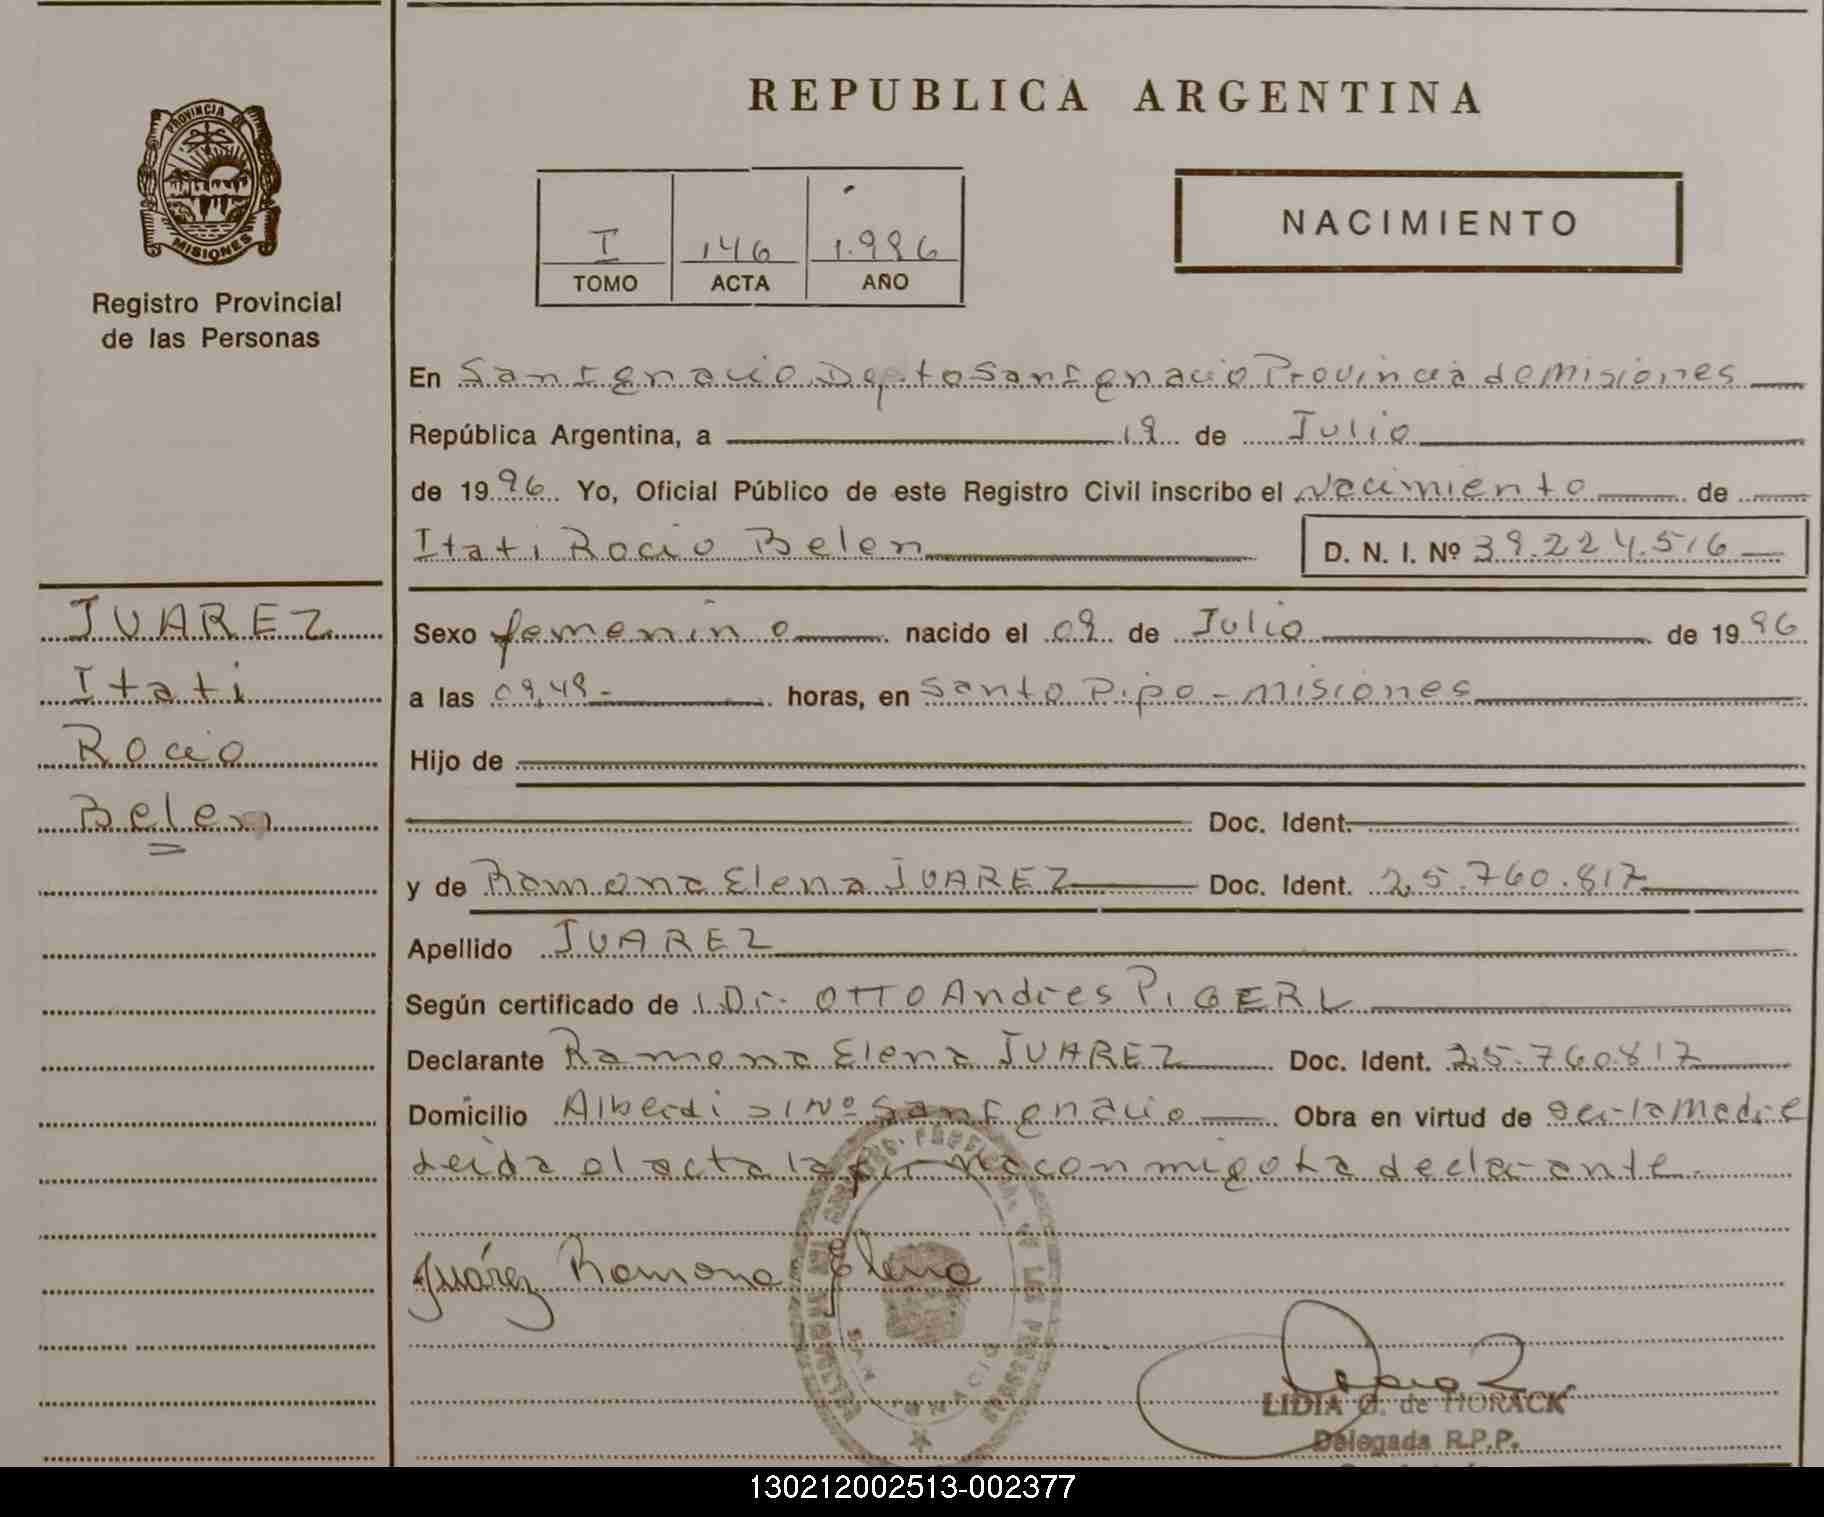 PROVINCIA DE
MISIONES
Registro Provincial
de las Personas
REPUBLICA ARGENTINA
I 146 1.996
TOMO ACTA AÑO
NACIMIENTO
En San Ignacio Depto San Ignacio Provincia de Misiones
República Argentina, a 19 de Julio
de 1996 Yo, Oficial Público de este Registro Civil inscribo el Nacimiento de
Itati Rocio Belen D. N. I. Nº 39.224.516
JUAREZ
Itati
Rocio
Belen
Sexo femenino nacido el 09 de Julio de 1996
a las 09,49- horas, en Santo Pipo - Misiones
Hijo de
Doc. Ident.
y de Ramona Elena JUAREZ Doc. Ident. 25.760.817
Apellido JUAREZ
Según certificado de Dr. OTTO Andres PIGERL
Declarante Ramona Elena JUAREZ Doc. Ident. 25.760.817
Domicilio Alberdi S/Nº San Ignacio Obra en virtud de ser la Madre
Leida el acta la firma conmigo la declarante.
Juárez Ramona Elena
SAN IGNACIO
LIDIA G. de HORACK
Delegada R.P.P.
130212002513-002377